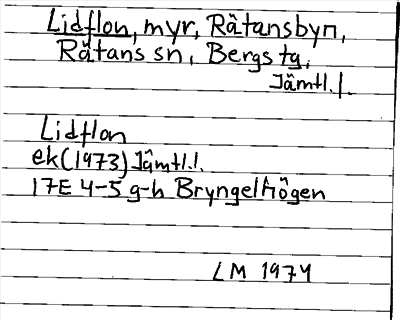 Lidflon, myr, Rätansbyn,
Rätans sn, Bergs tg,
Jämtl.l.
Lidflon
ek(1973) Jämtl.l.
17E 4-5 g-h Bryngelhögen
LM 1974